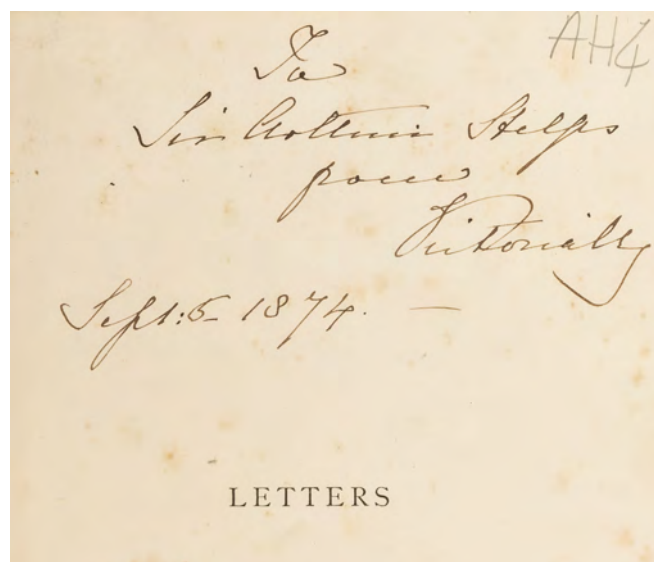 AH4
To
Sir Arthur Helps
from
Victoria R
Sept: 5 1874. —
LETTERS